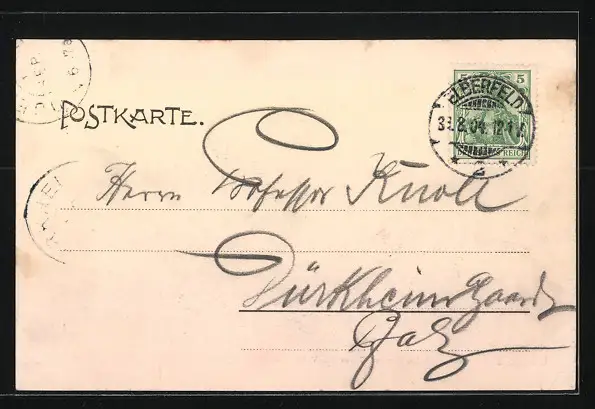 POSTKARTE.
5 5
ELBERFELD
8.04.12-1
* 2 *
REICH
Herrn Professor Knoll
Dürkheim
Pfalz